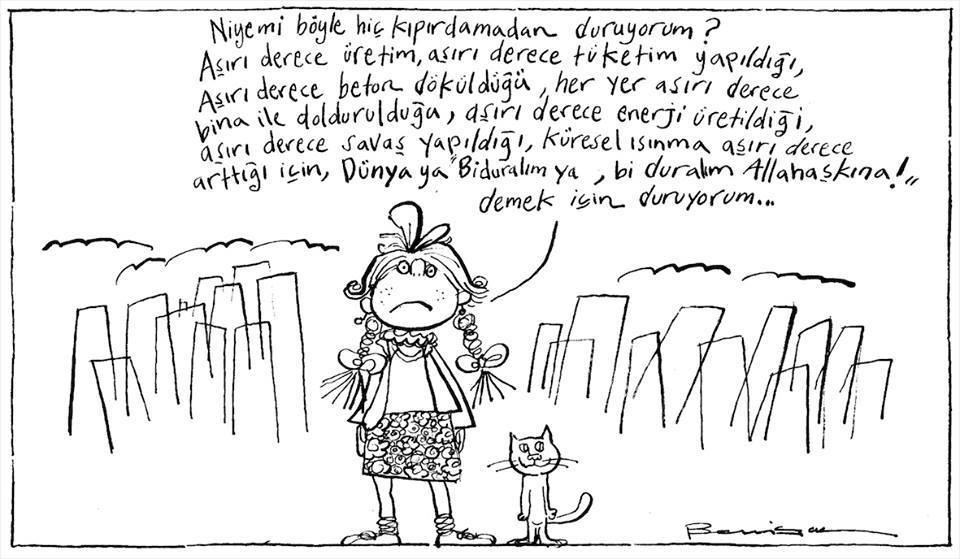 Niye mi böyle hiç kıpırdamadan duruyorum?
Aşırı derece üretim, aşırı derece tüketim yapıldığı,
Aşırı derece beton döküldüğü, her yer aşırı derece
bina ile doldurulduğu, aşırı derece enerji üretildiği,
aşırı derece savaş yapıldığı, küresel ısınma aşırı derece
arttığı için, Dünya ya "Bi duralım ya, bi duralım Allahaşkına!"
demek için duruyorum...